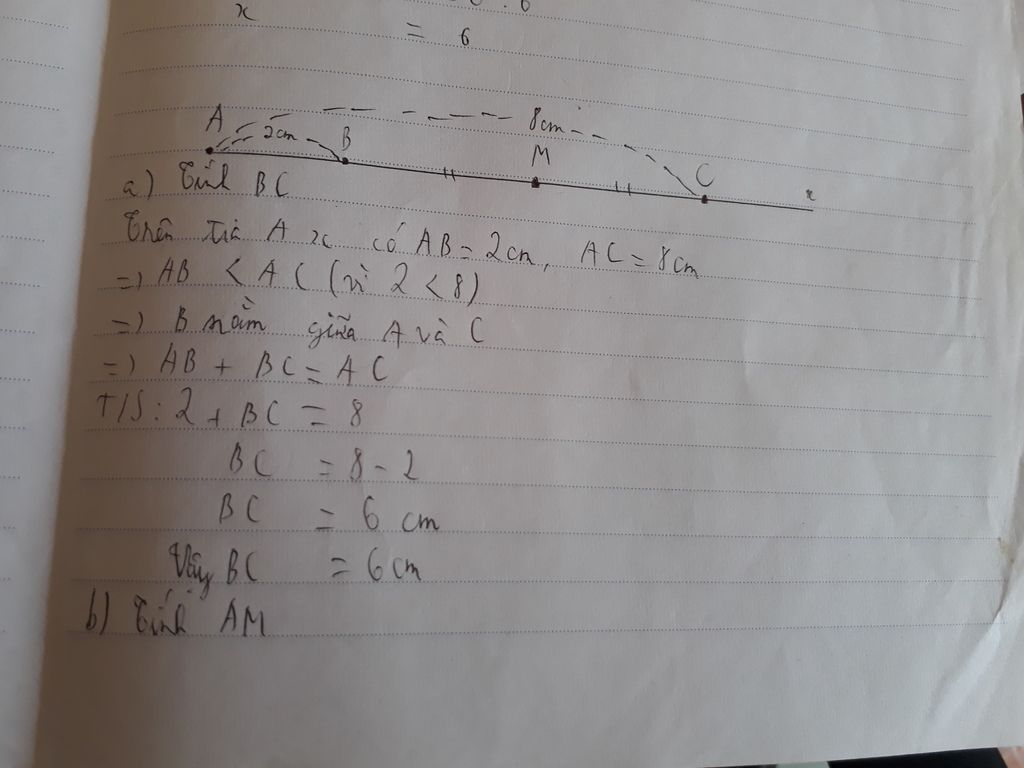 x
= 6
A 2cm B 8cm M C x
a) Tính BC
Trên tia A x có AB = 2cm, AC = 8cm
=) AB < AC (vì 2 < 8)
=) B nằm giữa A và C
=) AB + BC = AC
T/S: 2 + BC = 8
BC = 8 - 2
BC = 6 cm
Vậy BC = 6cm
b) Tính AM